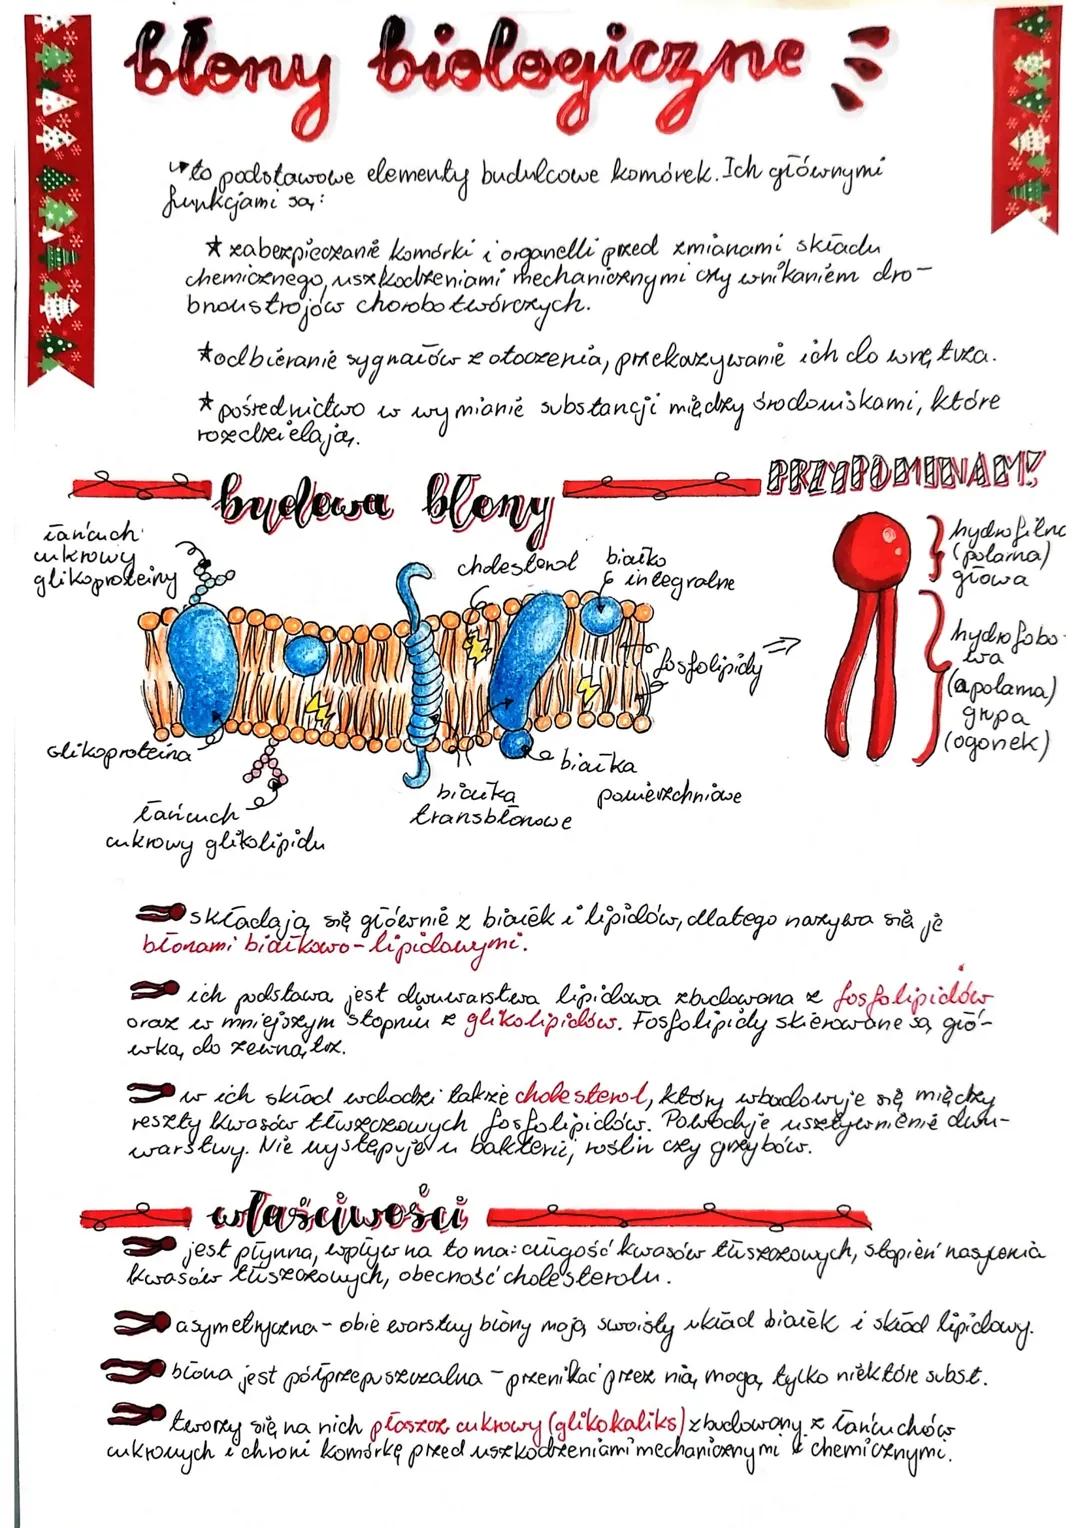 błony biologiczne
to podstawowe elementy budulcowe komórek. Ich głównymi
funkcjami są:
zabezpieczanie komórki i organelli przed zmianami składu
chemicznego, uszkodzeniami mechanicznymi czy wnikaniem dro-
bnoustrojów chorobotwórczych.
odbieranie sygnałów z otoczenia, przekazywanie ich do wnętrza.
pośrednictwo w wymianie substancji między środowiskami, które
rozdzielają.
budowa błony
PRZYPOMINAM!
łańcuch
cukrowy
glikoproteiny
cholesterol
białko
integralne
fosfolipidy
hydrofilna
(polarna)
głowa
hydrofobo-
wa
(apolarna)
grupa
(ogonek)
Glikoproteina
łańcuch
cukrowy glikolipidu
białka
transbłonowe
białka
powierzchniowe
składają się głównie z białek i lipidów, dlatego nazywa się je
błonami białkowo-lipidowymi.
ich podstawą jest dwuwarstwa lipidowa zbudowana z fosfolipidów
oraz w mniejszym stopniu z glikolipidów. Fosfolipidy skierowane są głó-
wką do zewnątrz.
w ich skład wchodzi także cholesterol, który wbudowyje się między
reszty kwasów tłuszczowych fosfolipidów. Powoduje usztywnienie dwu-
warstwy. Nie występuje u bakterii, roślin czy grzybów.
właściwości
jest płynna, wpływ na to ma: długość kwasów tłuszczowych, stopień nasycenia
kwasów tłuszczowych, obecność cholesterolu.
asymetryczna - obie warstwy błony mają swoisty układ białek i skład lipidowy.
błona jest półprzepuszczalna - przenikać przez nią mogą tylko niektóre subst.
tworzy się na nich płaszcz cukrowy (glikokaliks) zbudowany z łańcuchów
cukrowych i chroni komórkę przed uszkodzeniami mechanicznymi i chemicznymi.